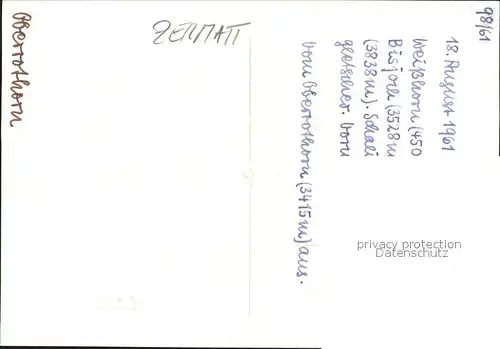 98/61
18. August 1961
Weißhorn (450
Bisjoch (3528m
(3838m). Schali
gletscher. Vom
Vom Oberrothorn (3415m) aus.
ZERMATT
Oberrothorn
privacy protection
Datenschutz